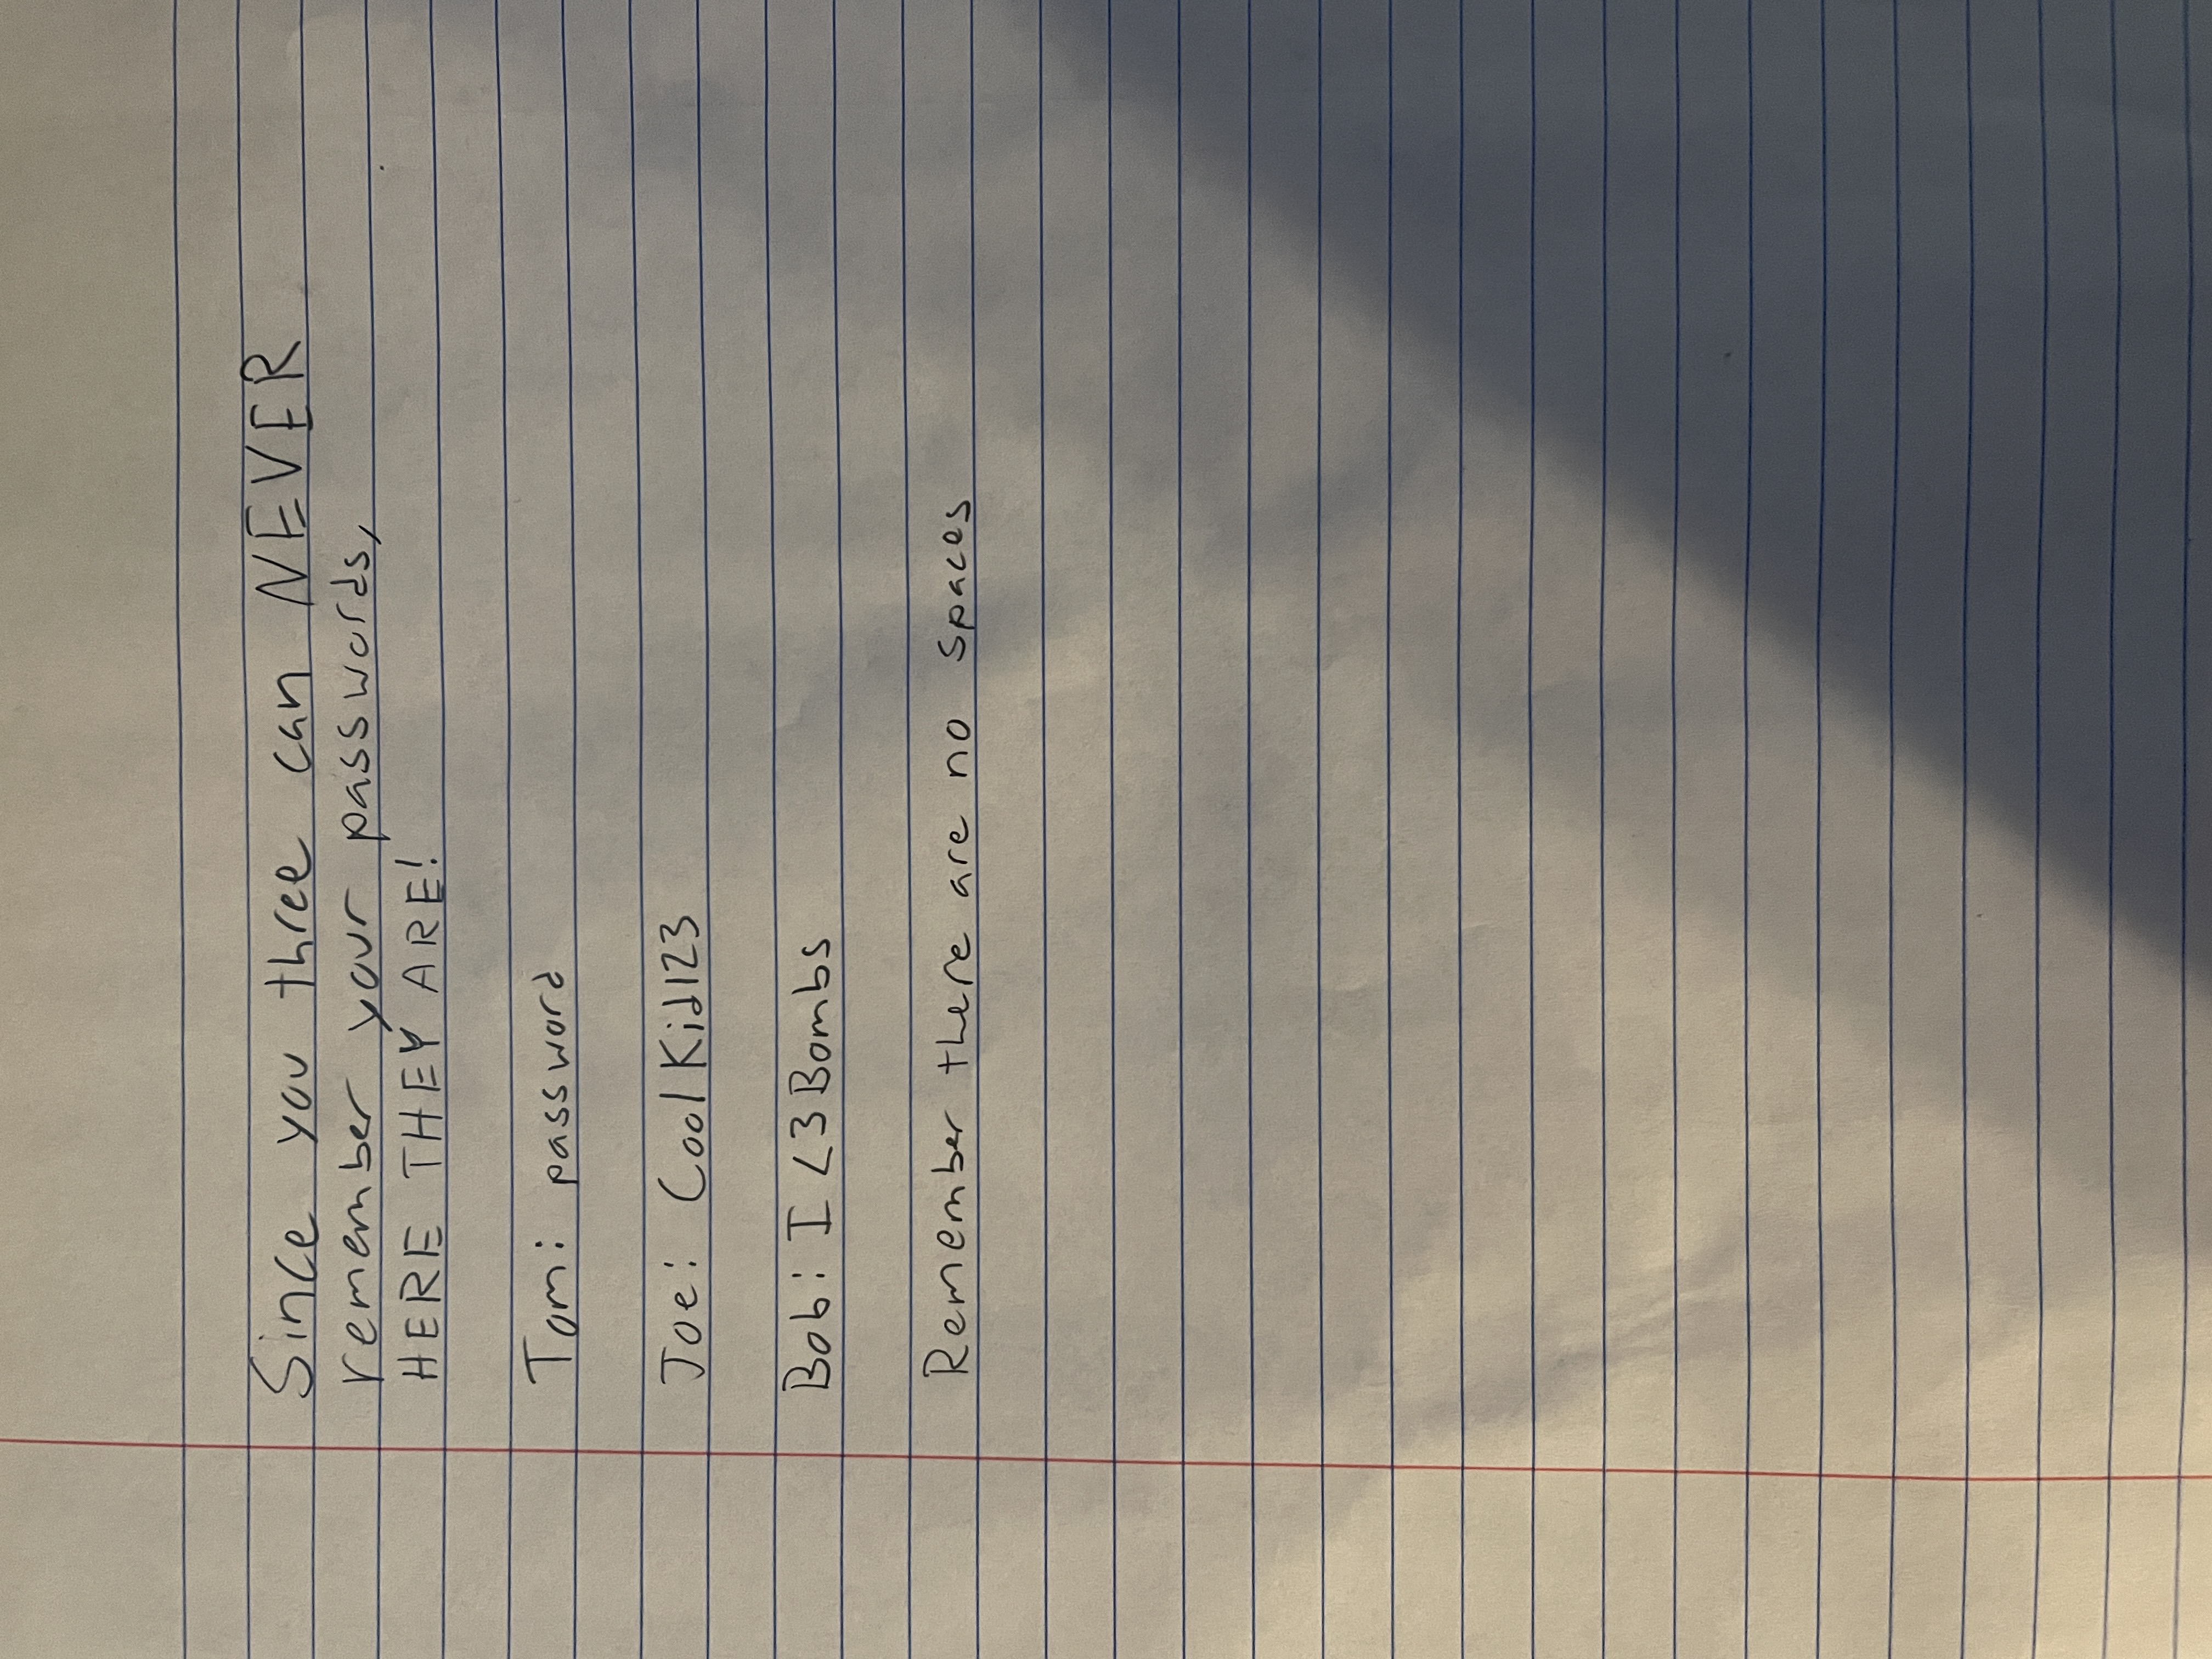 Since you three can NEVER
remember your passwords,
HERE THEY ARE!
Tom: password
Joe: CoolKid123
Bob: I <3 Bombs
Remember there are no spaces